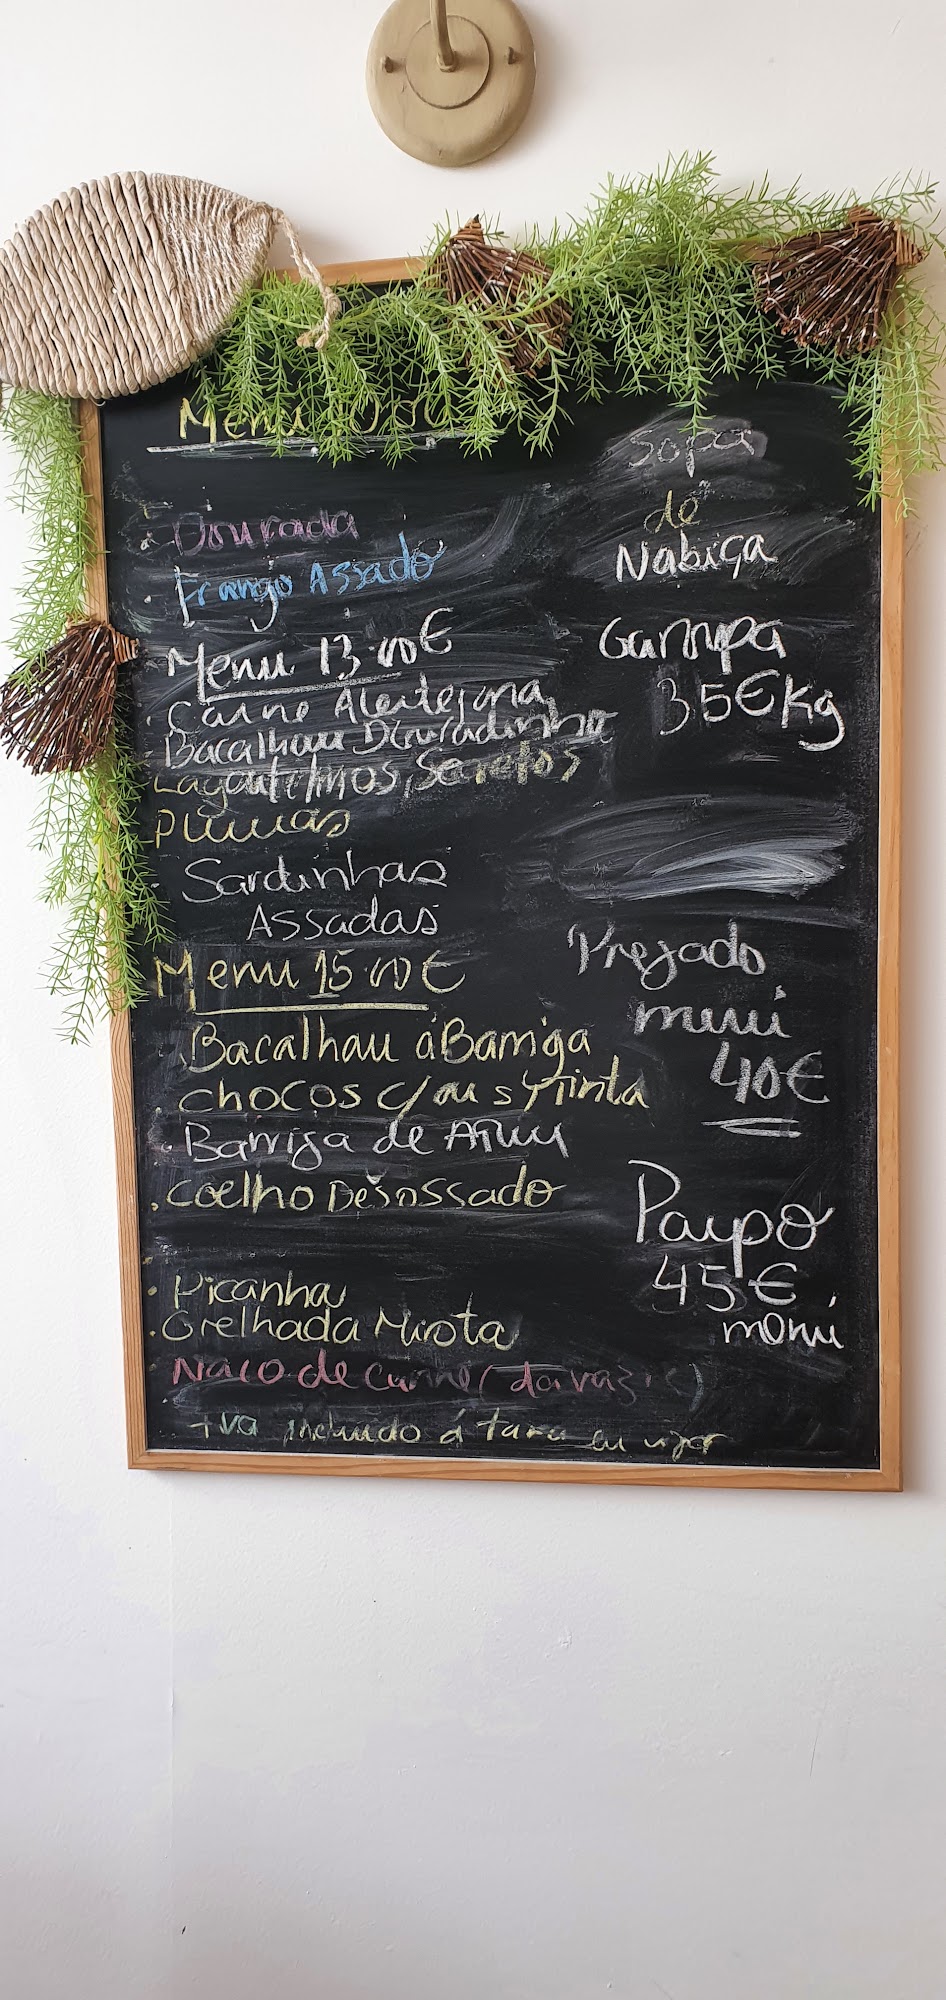 Menu
Dourada
Frango Assado
Menu 13.00€
Carne Alentejana
Bacalhau Douradinho
Lagartinhos, Secretos
Plumas
Sardinhas
Assadas
Menu 15.00€
Bacalhau á Barriga
Chocos c/ou s/tinta
Barriga de Atum
Coelho Desossado
Picanha
Grelhada Mista
Naco de Carne (da vazia)
Iva incluido á taxa em vigor
Sopa
de
Nabiça
Garoupa
35€Kg
Pregado
menú
40€
Pargo
45€
menú